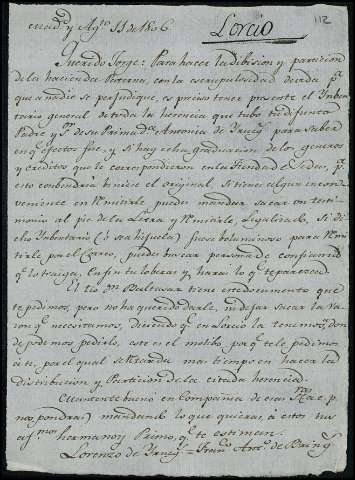 112
Madrid y Agto 11 de 1806. Lorcio
Querido Jorge: Para hacer la dibision y particion
de la hacienda Paterna, con la escrupulosidad devida pa
que a nadie se perjudique, es preciso tener presente el Inben-
tario general de toda la herencia que tubo tu difunto
Padre, y pr de su Prima Da Antonia de para saber
en qe efectos fue, y si hay echa graduacion de los generos
y creditos que le correspondieron en la tienda & ca, pa
esto combendria biniese el original, si tienes algun incon-
veniente en remitirle puedes mandar sacar un testi-
monio al pie de la Letra y remitirle, Legalizado, Si di-
cho Inbentario (o sea hijuela) fuese boluminoso para remi-
tirle por el Correo, puedes buscar persona de confianza
qe lo traiga, en fin tu lo beras, y haras lo qe te parezca.
El tio Dn Baltasar tiene este documento que
te pedimos, pero no ha querido darle, ni dejar sacar la ra-
zon qe necesitamos, diciendo qe en Lorcio la tenemos, don-
de podemos pedirlo, este es el motibo por qe te le pedimos
a ti, por el qual se retarda mas tiempo en hacer la
distribucion y Particion de la citada herencia.
Mantente bueno en compañia de esas
ponpondras) mandando lo que quieras, a estos tus
afmos hermano y Primo, qe te estiman
Lorenzo de = Franco Anto de